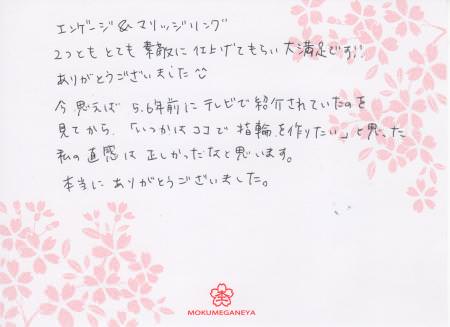 エンゲージ&マリッジリング
2つとも とても 素敵に 仕上げてもらい 大満足です!!
ありがとうございました
今 思えば 5.6年前に テレビで 紹介されていたのを
見てから、「いつかは ココで 指輪を作りたい」と思った
私の直感は 正しかったなと思います。
本当に ありがとうございました。
MOKUMEGANEYA